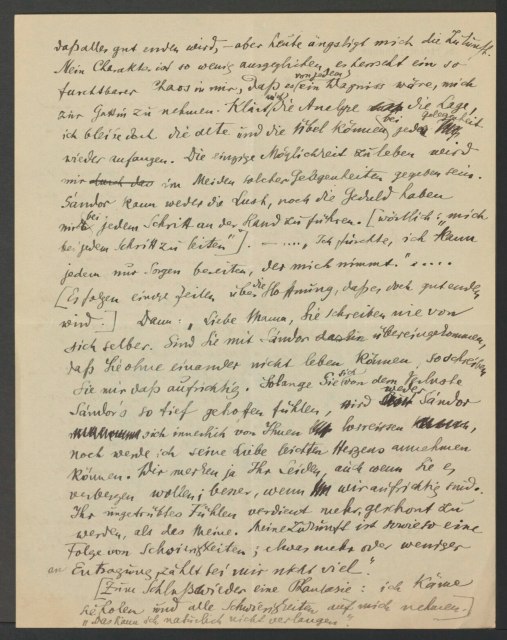 daß alles gut enden wird, – aber heute ängstigt mich die Zukunft.
Mein Charakter ist so wenig ausgeglichen, es herrscht ein so
furchtbarer Chaos in mir, daß es ein Wagniss wäre, mich
von jedem
zur Gattin zu nehmen. Klärt die Analyse die Lage,
nicht
ich bleibe doch die alte und die übel können bei jeder Gelegenheit
wieder anfangen. Die einzige Möglichkeit zu leben wird
mir durch das im Meiden solcher Gelegenheiten gegeben sein.
Sándor kann weder die Lust, noch die Geduld haben
mich bei jedem Schritt an der Hand zu führen. [wörtlich: "mich
bei jedem Schritt zu leiten"]. – ...." Ich fürchte, ich kann
jedem nur Sorgen bereiten, der mich nimmt." .....
[Es folgen einige Zeilen über die Hoffnung, daß es doch gut enden
wird.] Dann: "Liebe Mama, Sie schreiben nie von
sich selber. Sind Sie mit Sándor übereingekommen,
daß Sie ohne einander nicht leben können, so schreiben
Sie mir daß aufrichtig. Solange Sie sich von dem Verluste
Sándors so tief getroffen fühlen, wird weder Sándor
sich innerlich von Ihnen losreissen
noch werde ich seine Liebe leichten Herzens annehmen
können. Wir merken ja Ihr Leiden, auch wenn Sie es
verbergen wollen; besser, wenn wir aufrichtig sind.
Ihr ungetrübtes Fühlen verdient mehr, geschont zu
werden, als das meine. Meine Zukunft ist sowieso eine
Folge von Schwierigkeiten; etwas mehr oder weniger
an Entsagung zählt bei mir nicht viel."
[Zum Schluß wieder eine Phantasie: ich käme
sie holen und alle Schwierigkeiten auf mich nehmen.]
"Das kann ich natürlich nicht verlangen."